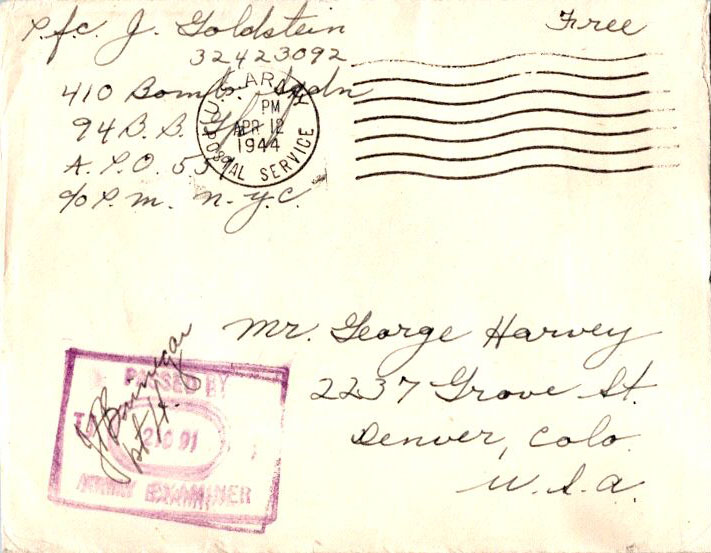 P.f.c. J. Goldstein
Free
32423092
410 Bomb. Sqdn
94 B. B. Gp
A. P. O. 559
c/o P. M. N. Y. C.
U.S. ARMY
PM
APR 12
1944
POSTAL SERVICE
Mr. George Harvey
2237 Grove St.
Denver, Colo.
U. S. A.
PASSED BY
ARMY EXAMINER